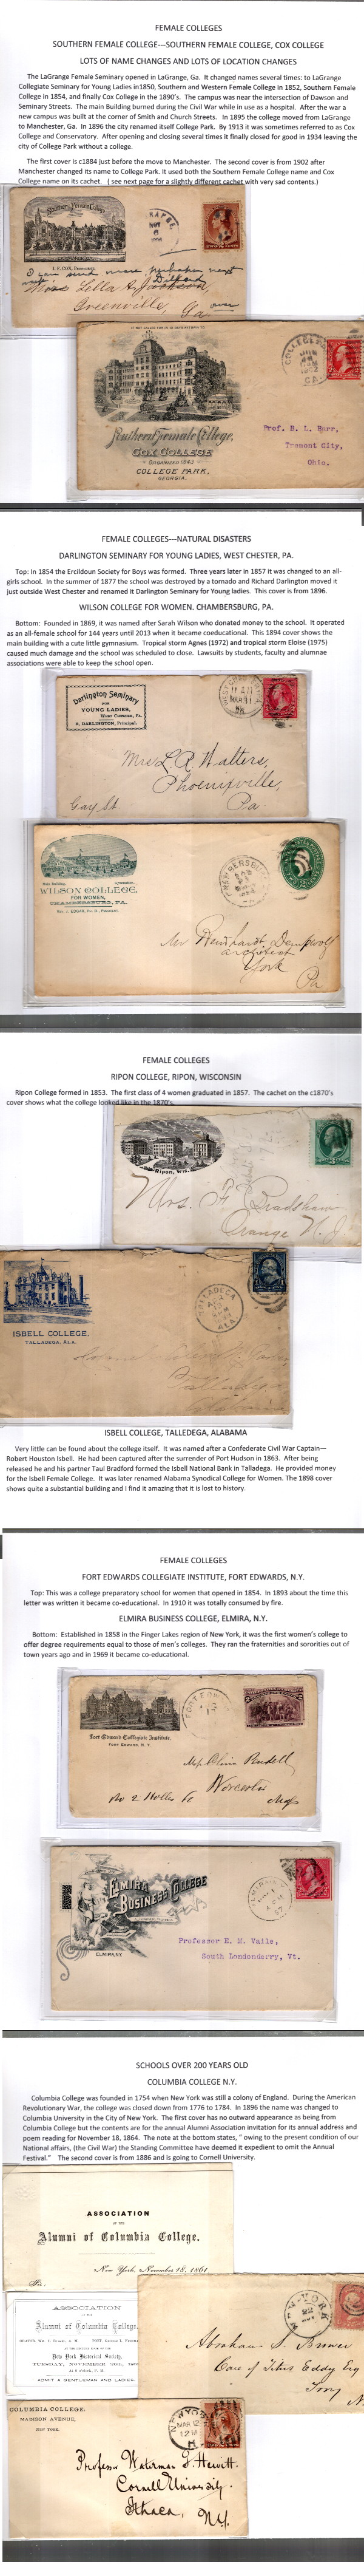 FEMALE COLLEGES
SOUTHERN FEMALE COLLEGE---SOUTHERN FEMALE COLLEGE, COX COLLEGE
LOTS OF NAME CHANGES AND LOTS OF LOCATION CHANGES
The LaGrange Female Seminary opened in LaGrange, Ga. It changed names several times: to LaGrange
Collegiate Seminary for Young Ladies in1850, Southern and Western Female College in 1852, Southern Female
College in 1854, and finally Cox College in the 1890's. The campus was near the intersection of Dawson and
Seminary Streets. The main Building burned during the Civil War while in use as a hospital. After the war a
new campus was built at the corner of Smith and Church Streets. In 1895 the college moved from LaGrange
to Manchester, Ga. In 1896 the city renamed itself College Park. By 1913 it was sometimes referred to as Cox
College and Conservatory. After opening and closing several times it finally closed for good in 1934 leaving the
city of College Park without a college.
The first cover is c1884 just before the move to Manchester. The second cover is from 1902 after
Manchester changed its name to College Park. It used both the Southern Female College name and Cox
College name on its cachet. ( see next page for a slightly different cachet with very sad contents.)
I. F. COX, PRESIDENT.
I can send more perhaps next
Greenville,
Ga
over
IF NOT CALLED FOR IN 10 DAYS RETURN TO
Southern Female College,
COX COLLEGE
ORGANIZED 1843
COLLEGE PARK,
GEORGIA.
COLLEGE
1902
GA.
Prof. B. L. Barr,
Tremont City,
Ohio.
FEMALE COLLEGES---NATURAL DISASTERS
DARLINGTON SEMINARY FOR YOUNG LADIES, WEST CHESTER, PA.
Top: In 1854 the Ercildoun Society for Boys was formed. Three years later in 1857 it was changed to an all-
girls school. In the summer of 1877 the school was destroyed by a tornado and Richard Darlington moved it
just outside West Chester and renamed it Darlington Seminary for Young Ladies. This cover is from 1896.
WILSON COLLEGE FOR WOMEN. CHAMBERSBURG, PA.
Bottom: Founded in 1869, it was named after Sarah Wilson who donated money to the school. It operated
as an all-female school for 144 years until 2013 when it became coeducational. This 1894 cover shows the
main building with a cute little gymnasium. Tropical storm Agnes (1972) and tropical storm Eloise (1975)
caused much damage and the school was scheduled to close. Lawsuits by students, faculty and alumnae
associations were able to keep the school open.
Darlington Seminary
FOR
YOUNG LADIES,
WEST CHESTER, PA.
R. DARLINGTON, Principal.
11 AM
MAR 31
Mrs L. R. Walters,
Phoenixville,
Pa
Gay St
Main Building.
Gymnasium.
WILSON COLLEGE,
FOR WOMEN,
CHAMBERSBURG, PA.
CHAMBERSBURG
Mr Reinhardt Dempwolf
architect
York
Pa
FEMALE COLLEGES
RIPON COLLEGE, RIPON, WISCONSIN
Ripon College formed in 1853. The first class of 4 women graduated in 1857. The cachet on the c1870's
cover shows what the college looked like in the 1870's.
Ripon, Wis.
Mrs. F. Bradshaw
Orange N. J.
ISBELL COLLEGE.
TALLADEGA, ALA.
TALLADEGA
ALA.
ISBELL COLLEGE, TALLEDEGA, ALABAMA
Very little can be found about the college itself. It was named after a Confederate Civil War Captain—
Robert Houston Isbell. He had been captured after the surrender of Port Hudson in 1863. After being
released he and his partner Taul Bradford formed the Isbell National Bank in Talladega. He provided money
for the Isbell Female College. It was later renamed Alabama Synodical College for Women. The 1898 cover
shows quite a substantial building and I find it amazing that it is lost to history.
FEMALE COLLEGES
FORT EDWARDS COLLEGIATE INSTITUTE, FORT EDWARDS, N.Y.
Top: This was a college preparatory school for women that opened in 1854. In 1893 about the time this
letter was written it became co-educational. In 1910 it was totally consumed by fire.
ELMIRA BUSINESS COLLEGE, ELMIRA, N.Y.
Bottom: Established in 1858 in the Finger Lakes region of New York, it was the first women's college to
offer degree requirements equal to those of men's colleges. They ran the fraternities and sororities out of
town years ago and in 1969 it became co-educational.
Fort Edward Collegiate Institute,
FORT EDWARD, N. Y.
Worcester
Mass
ELMIRA
BUSINESS COLLEGE
ELMIRA, N.Y.
Professor E. M. Vaile,
South Londonderry, Vt.
SCHOOLS OVER 200 YEARS OLD
COLUMBIA COLLEGE N.Y.
Columbia College was founded in 1754 when New York was still a colony of England. During the American
Revolutionary War, the college was closed down from 1776 to 1784. In 1896 the name was changed to
Columbia University in the City of New York. The first cover has no outward appearance as being from
Columbia College but the contents are for the annual Alumni Association invitation for its annual address and
poem reading for November 18, 1864. The note at the bottom states, " owing to the present condition of our
National affairs, (the Civil War) the Standing Committee have deemed it expedient to omit the Annual
Festival." The second cover is from 1886 and is going to Cornell University.
ASSOCIATION
OF THE
Alumni of Columbia College.
New York, November 18, 1861.
Sir:
ASSOCIATION
OF THE
Alumni of Columbia College,
New York Historical Society,
ADMIT A GENTLEMAN AND LADIES.
NEW-YORK
22
Care of Titus Eddy Esq
Troy
COLUMBIA COLLEGE.
MADISON AVENUE,
NEW YORK.
NEW YORK
MAR 12
12 M
Professor Waterman T. Hewett.
Cornell University.
Ithaca,
N.Y.